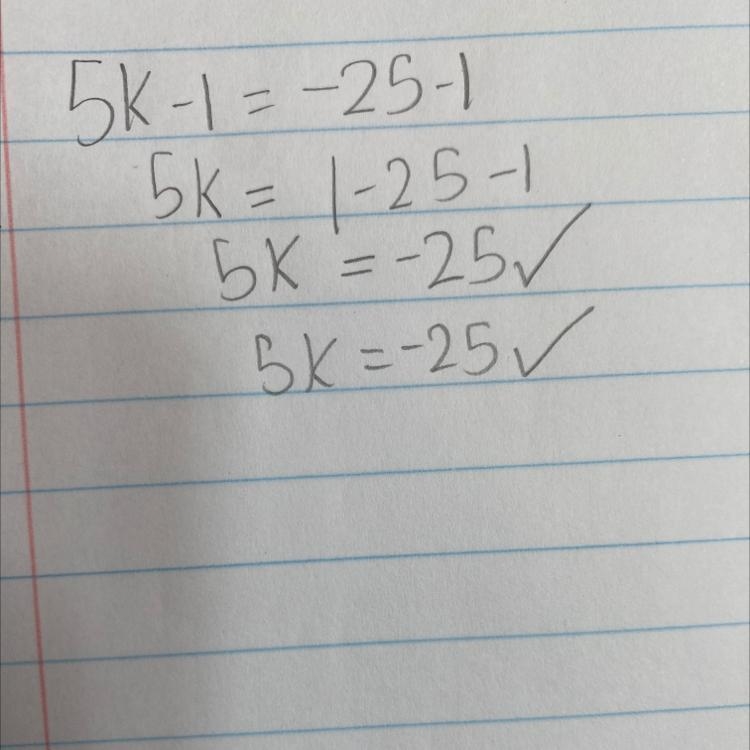 5k-1 = -25-1
5k = 1-25-1
5k = -25✓
5k = -25✓